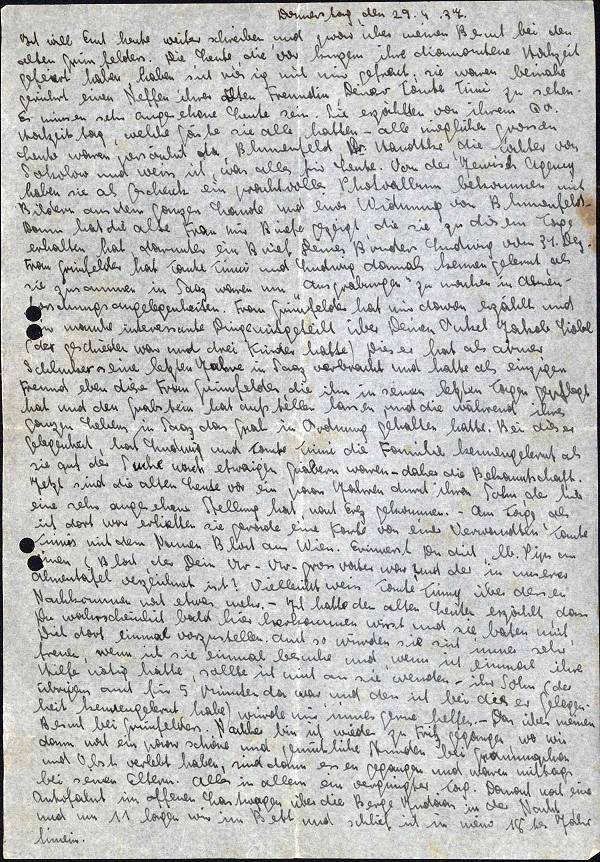 Donnerstag, den 29.4.37.
Ich will Euch heute weiter schreiben und zwar über meinen Besuch bei den
alten Grünfelders. Die Leute die vor kurzem ihre diamantene Hochzeit
gefeiert haben haben sich riesig mit mir gefreut; sie waren beinahe
gerührt einen Neffen ihrer alten Freundin Deiner Tante Timi zu sehen.
Es müssen sehr angesehene Leute sein. Sie erzählten von ihrem 60.
Hochzeitstag, welche Gäste sie alle hatten – alle möglichen grossen
Leute waren persönlich da Blumenfeld Dr. die Tochter von
Sokolow und weiss ich, was alles für Leute. Von der Jewish Agency
haben sie als Geschenk ein prachtvolles Photoalbum bekommen mit
Bildern aus dem ganzen Lande und einer Widmung von Blumenfeld.
Dann hat die alte Frau mir Briefe gezeigt die sie zu diesem Tage
erhalten hat darunter ein Brief Deines Bruders Ludwig vom 31. Dez.
Frau Grünfelder hat Tante Timi und Ludwig damals kennen gelernt als
sie zusammen in Saaz waren um „Ausgrabungen" zu machen in Ahnen-
forschungsangelegenheiten. Frau Grünfelder hat mir davon erzählt und
mir manche interessante Dinge mitgeteilt über Deinen Onkel Jakob
(der geschieden war und drei Kinder hatte) Dieser hat als armer
seine letzten Jahre in Saaz verbracht und hatte als einzigen
Freund eben diese Frau Grünfelder die ihn in seinen letzten Tagen gepflegt
hat und den Grabstein hat aufstellen lassen und die während ihres
ganzen Lebens in Saaz das Grab in Ordnung gehalten hatte. Bei dieser
Gelegenheit, hat Ludwig und Tante Timi die Familie kennengelernt als
sie auf der Suche nach etwaigen Gräbern waren – daher die Bekanntschaft.
Jetzt sind die alten Leute vor ein paar Jahren durch ihren Sohn der hier
eine sehr angesehene Stellung hat nach Erez gekommen. – Am Tag als
ich dort war erhielten sie gerade eine Karte von einer Verwandten Tante
Timis mit dem Namen Bloch aus Wien. Erinnerst Du dich lb. Pips an
einen Bloch der Dein Ur-Ur-Grossvater war und der in unserer
Ahnentafel verzeichnet ist? Vielleicht weiss Tante Timi über dessen
Nachkommen noch etwas mehr. – Ich hatte den alten Leuten erzählt dass
Du wahrscheinlich bald hier herkommen wirst und sie baten mich
Dich dort einmal vorzustellen. Auch so würden sie sich immer sehr
freuen, wenn ich sie einmal besuche und, wenn ich einmal ihre
Hilfe nötig hätte, sollte ich mich an sie wenden – ihr Sohn (der
übrigens auch für 5 Minuten da war und den ich bei dieser Gelegen-
heit kennengelernt habe) würde mir immer gerne helfen. – Das über meinen
Besuch bei Grünfelders. Nachher bin ich wieder zu Fritz gegangen wo wir
dann noch ein paar schöne und gemütliche Stunden bei Grammophon
und Obst verlebt haben, sind dann essen gegangen und waren mittags
bei seinen Eltern. Alles in allem ein vergnügter Tag. Darauf noch eine
Autofahrt im offenen Lastwagen über die Berge Judäas in der Nacht
und um 11 lagen wir im Bett und schlief ich in mein 18tes Jahr
hinein.